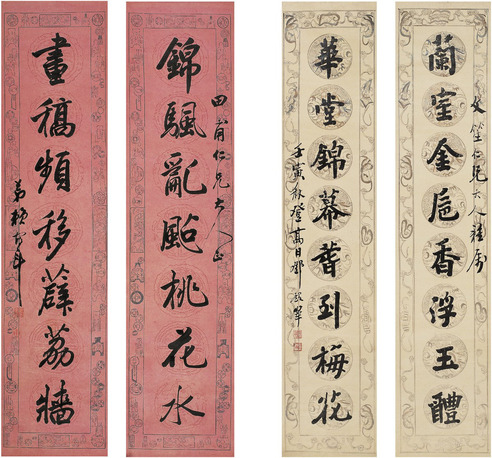 蘭室金卮香浮玉醴
仁兄大人雅屬
華堂錦幕到梅花
壬寅秋登高日鄧
錦颿亂颭桃花水
仁兄大人正
畫稿頻移薜荔牆
弟